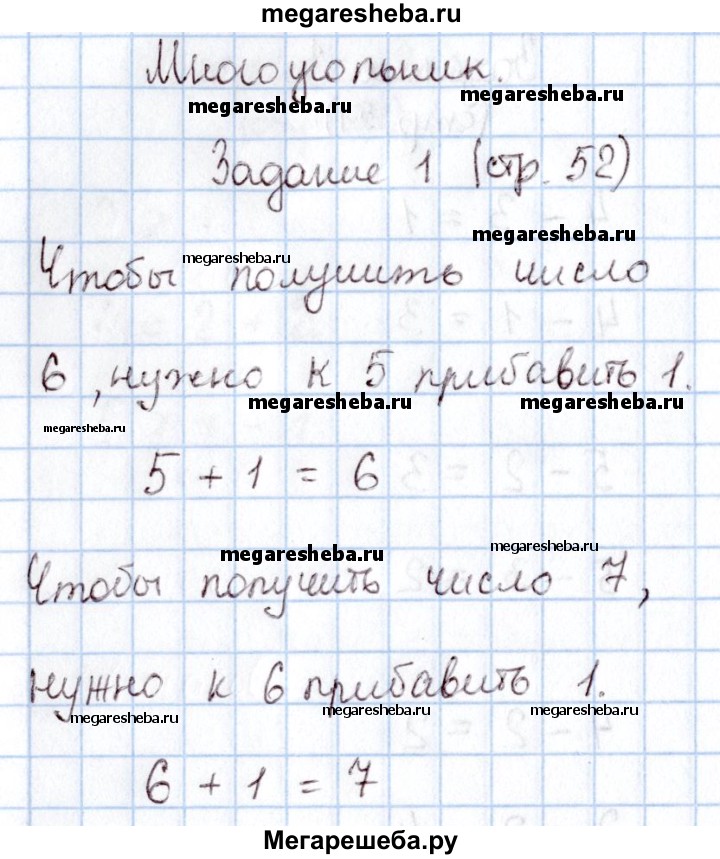 megaresheba.ru
Многоугольник.
megaresheba.ru megaresheba.ru
Задание 1 (стр. 52)
megaresheba.ru
megaresheba.ru
Чтобы получить число
6, нужно к 5 прибавить 1.
megaresheba.ru megaresheba.ru
megaresheba.ru
5 + 1 = 6
megaresheba.ru megaresheba.ru
Чтобы получить число 7,
нужно к 6 прибавить 1.
megaresheba.ru megaresheba.ru megaresheba.ru
6 + 1 = 7
Мегарешеба.ру